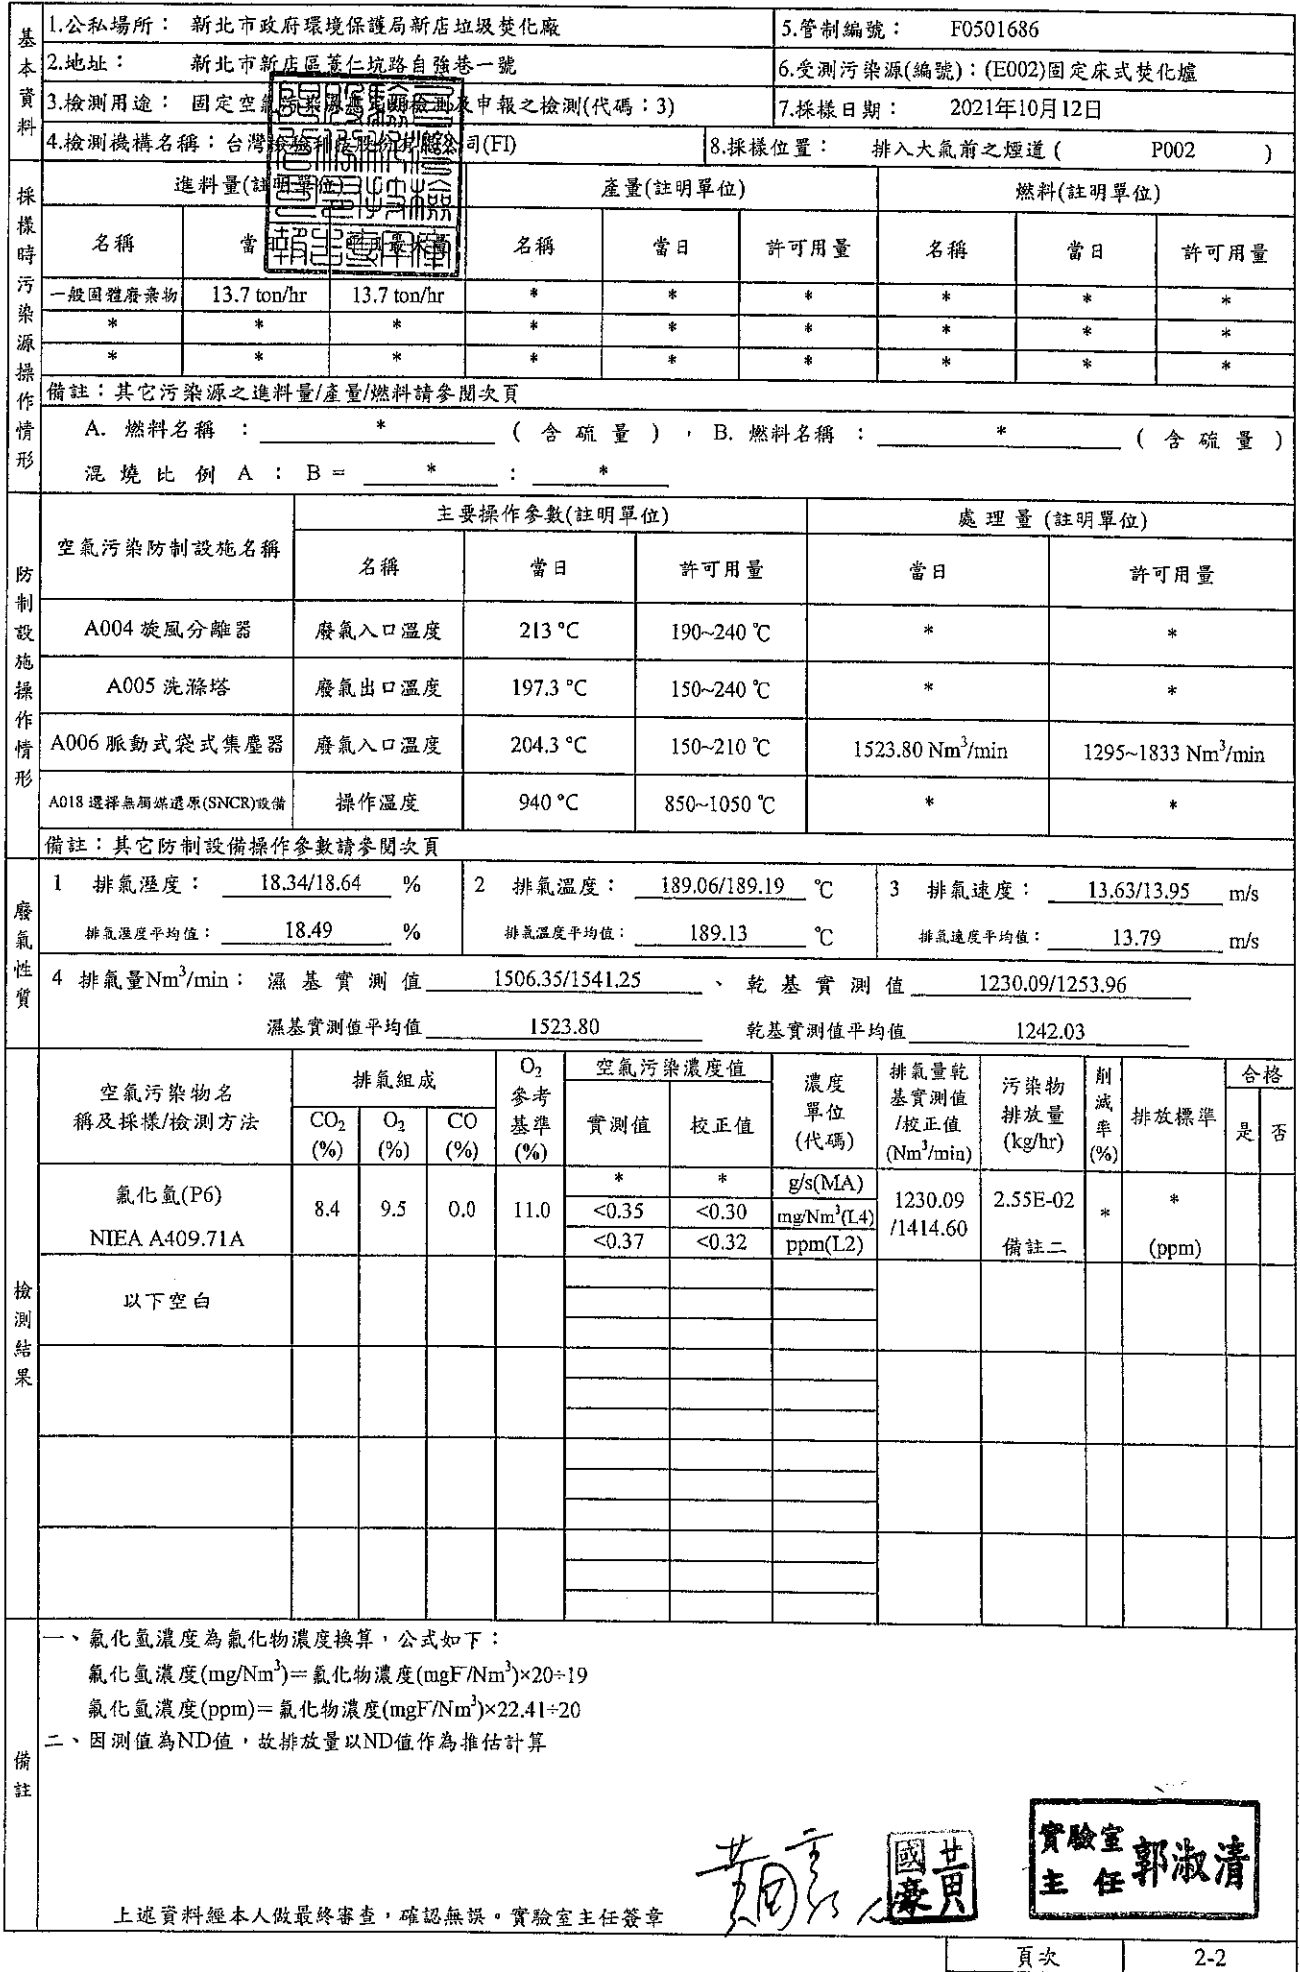 基本資料
1.公私場所： 新北市政府環境保護局新店垃圾焚化廠
5.管制編號： F0501686
2.地址： 新北市新店區薏仁坑路自強巷一號
6.受測污染源(編號)：(E002)固定床式焚化爐
3.檢測用途： 固定空氣污染源定期檢測及申報之檢測(代碼：3)
7.採樣日期： 2021年10月12日
4.檢測機構名稱：台灣檢驗科技股份有限公司(FI)
8.採樣位置： 排入大氣前之煙道( P002 )
採樣時污染源操作情形
進料量(註明單位) 產量(註明單位) 燃料(註明單位)
名稱 當 名稱 當日 許可用量 名稱 當日 許可用量
一般固體廢棄物 13.7 ton/hr 13.7 ton/hr * * * * * *
* * * * * * * * *
* * * * * * * * *
備註：其它污染源之進料量/產量/燃料請參閱次頁
A. 燃料名稱 ： * ( 含 硫 量 ) ， B. 燃料名稱 ： * ( 含 硫 量 )
混 燒 比 例 A ： B = * ： *
防制設施操作情形
空氣污染防制設施名稱 主要操作參數(註明單位) 處 理 量 (註明單位)
名稱 當日 許可用量 當日 許可用量
A004 旋風分離器 廢氣入口溫度 213 °C 190~240 ℃ * *
A005 洗滌塔 廢氣出口溫度 197.3 °C 150~240 ℃ * *
A006 脈動式袋式集塵器 廢氣入口溫度 204.3 °C 150~210 ℃ 1523.80 Nm³/min 1295~1833 Nm³/min
A018 選擇無觸媒還原(SNCR)設備 操作溫度 940 °C 850~1050 ℃ * *
備註：其它防制設備操作參數請參閱次頁
廢氣性質
1 排氣溼度： 18.34/18.64 % 2 排氣溫度： 189.06/189.19 ℃ 3 排氣速度： 13.63/13.95 m/s
排氣溼度平均值： 18.49 % 排氣溫度平均值： 189.13 ℃ 排氣速度平均值： 13.79 m/s
4 排氣量Nm³/min： 濕 基 實 測 值 1506.35/1541.25 、 乾 基 實 測 值 1230.09/1253.96
濕基實測值平均值 1523.80 乾基實測值平均值 1242.03
檢測結果
空氣污染物名稱及採樣/檢測方法 排氣組成 O₂參考基準(%) 空氣污染濃度值 濃度單位(代碼) 排氣量乾基實測值/校正值(Nm³/min) 污染物排放量(kg/hr) 削減率(%) 排放標準 合格
CO₂(%) O₂(%) CO(%) 實測值 校正值 是 否
氟化氫(P6) NIEA A409.71A 8.4 9.5 0.0 11.0 * * g/s(MA) 1230.09/1414.60 2.55E-02 備註二 * * (ppm)
<0.35 <0.30 mg/Nm³(L4)
<0.37 <0.32 ppm(L2)
以下空白
備註
一、氟化氫濃度為氟化物濃度換算，公式如下：
氟化氫濃度(mg/Nm³)＝氟化物濃度(mgF⁻/Nm³)×20÷19
氟化氫濃度(ppm)＝氟化物濃度(mgF⁻/Nm³)×22.41÷20
二、因測值為ND值，故排放量以ND值作為推估計算
上述資料經本人做最終審查，確認無誤。實驗室主任簽章
黃國豪
實驗室主任 郭淑清
頁次 2-2